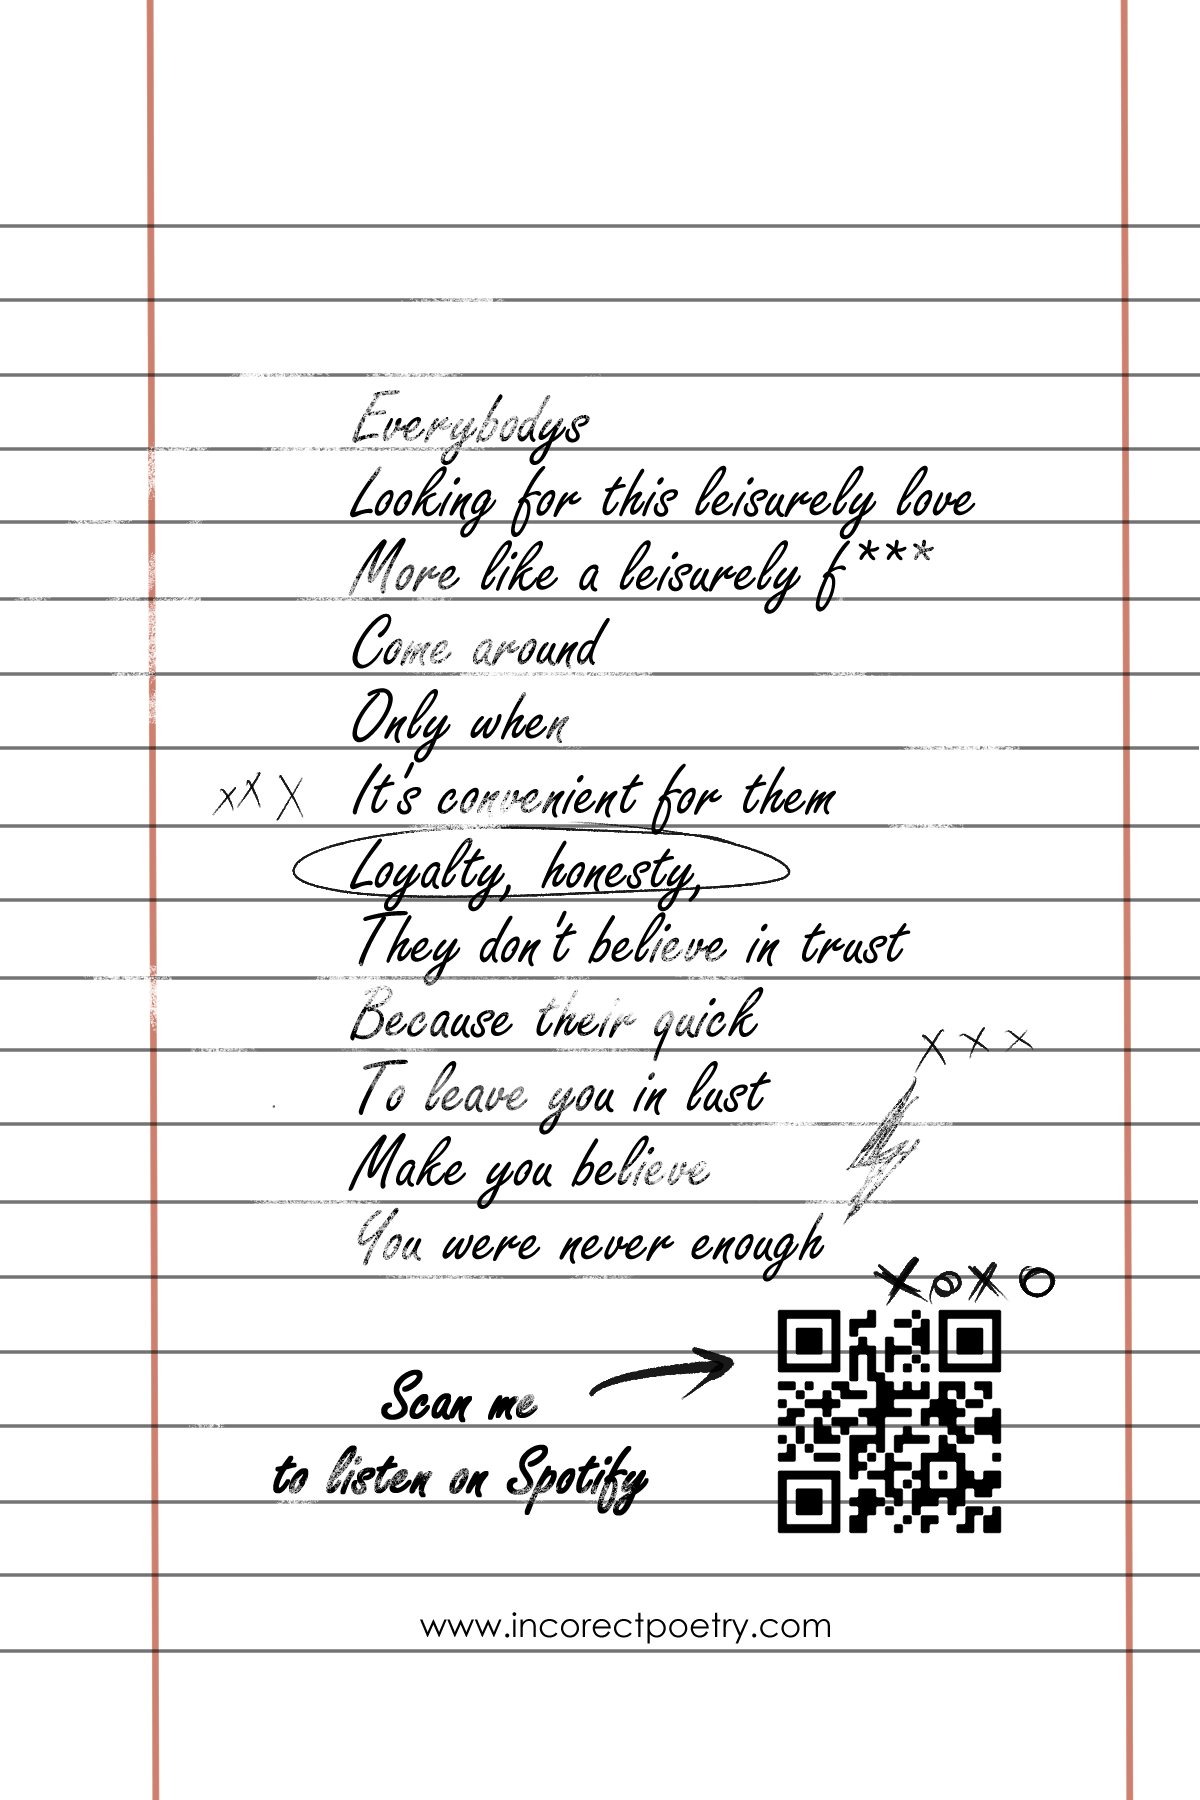 Everybodys
Looking for this leisurely love
More like a leisurely f***
Come around
Only when
xxx
It's convenient for them
Loyalty, honesty,
They don't believe in trust
Because their quick
xxx
To leave you in lust
Make you believe
You were never enough
xoxo
Scan me
to listen on Spotify
www.incorectpoetry.com